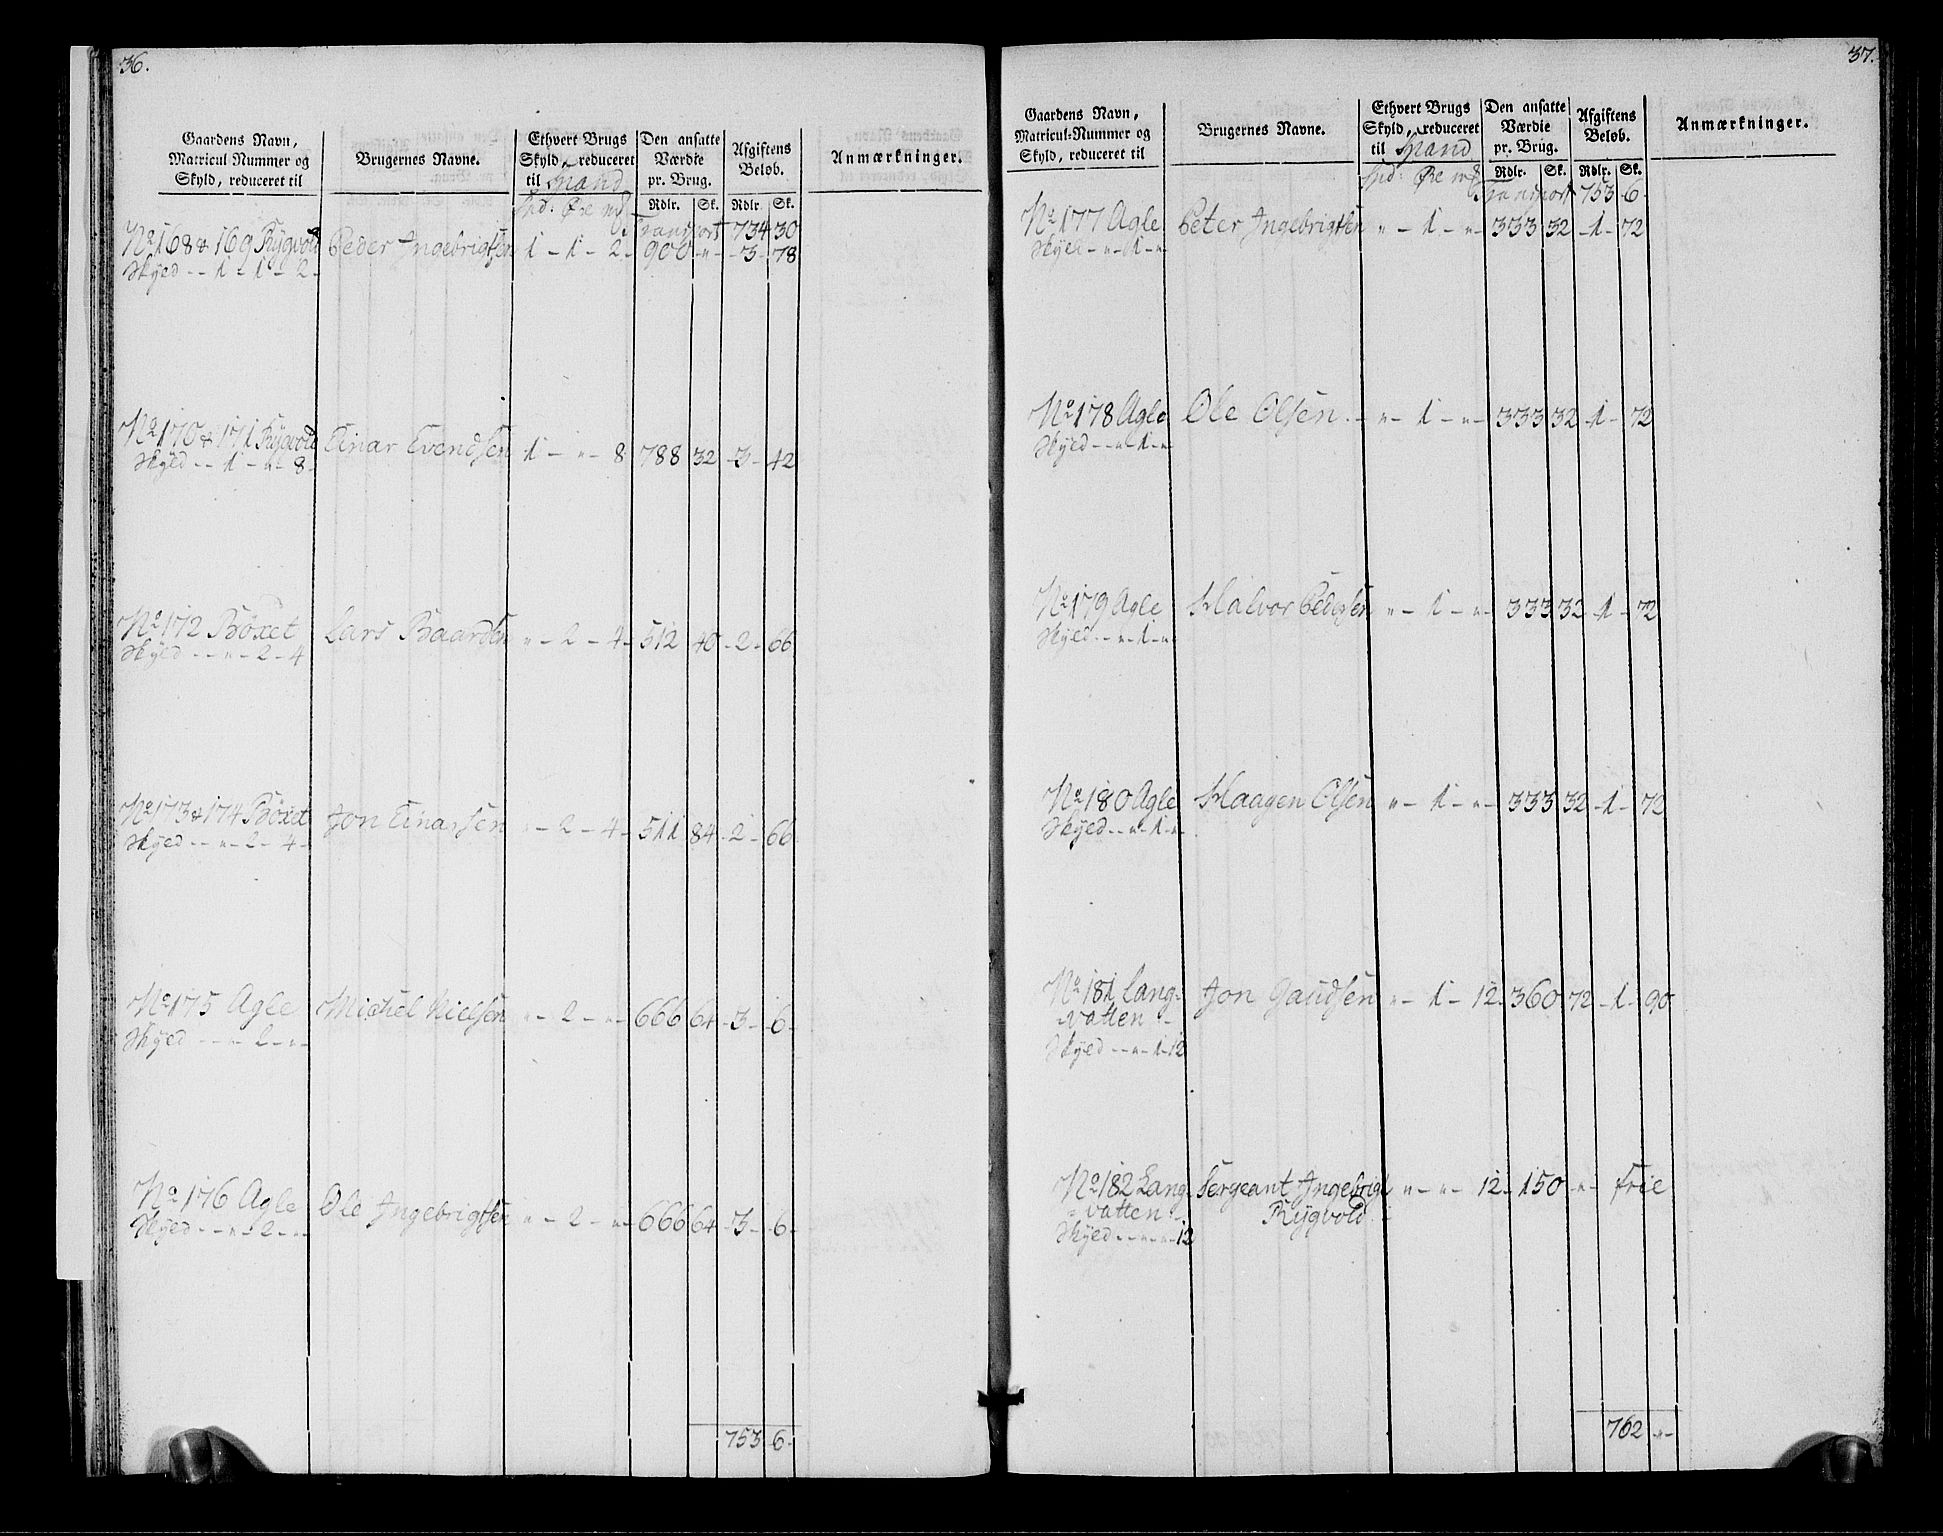 36.
Gaardens Navn,
Matricul Nummer og
Skyld, reduceret til
Brugernes Navne.
Ethvert Brugs
Skyld, reduceret
til Spand
Spd: Øre mk
Den ansatte
Værdie
pr. Brug.
Rdlr. Sk.
Afgiftens
Beløb.
Rdlr. Sk.
Anmærkninger.
Transport 734 30
No 168 & 169 Rygvold Peder Ingebrigtsen 1 - 1 - 2 - 900 - " - 3 - 78
Skyld - - 1 - 1 - 2 -
No 170 & 171 Rygvold Einar Evendsen 1 - " - 8 788 32 - 3 - 42
Skyld - - 1 - " - 8 -
No 172 Böxet Lars Baardsen " - 2 - 4 - 512 40 - 2 - 66
Skyld - - " - 2 - 4
No 173 & 174 Böxet Jon Einarsen " - 2 - 4 - 511 84 - 2 - 66
Skyld - - " - 2 - 4 -
No 175 Agle Michel Nielsen " - 2 - " - 666 64 - 3 - 6 -
Skyld - - " - 2 - " -
No 176 Agle Ole Ingebrigtsen " - 2 - " - 666 64 - 3 - 6 -
Skyld - - " - 2 - " -
753 6 -
37.
Gaardens Navn,
Matricul-Nummer og
Skyld, reduceret til
Brugernes Navne.
Ethvert Brugs
Skyld, reduceret
til Spand
Spd: Øre mk
Den ansatte
Værdie
pr. Brug.
Rdlr. Sk.
Afgiftens
Beløb.
Rdlr. Sk.
Anmærkninger.
Transport 753 6 -
No 177 Agle Peter Ingebrigtsen " - 1 - " - 333 32 - 1 - 72
Skyld - - " - 1 - "
No 178 Agle Ole Olsen - " - 1 - " - 333 32 - 1 - 72
Skyld - - " - 1 - "
No 179 Agle Halvor Pedersen " - 1 - " - 333 32 - 1 - 72
Skyld - - " - 1 - "
No 180 Agle Haagen Olsen " - 1 - " - 333 32 - 1 - 72
Skyld - - " - 1 - "
No 181 Lang- Jon Gaudsen " - 1 - 12 - 360 72 - 1 - 90
vatten -
Skyld - - " - 1 - 12
No 182 Lang- Sergeant Ingebrigt " - " - 12 - 150 - " - frie
vatten - Rygvold
Skyld - - " - " - 12
762 - " -